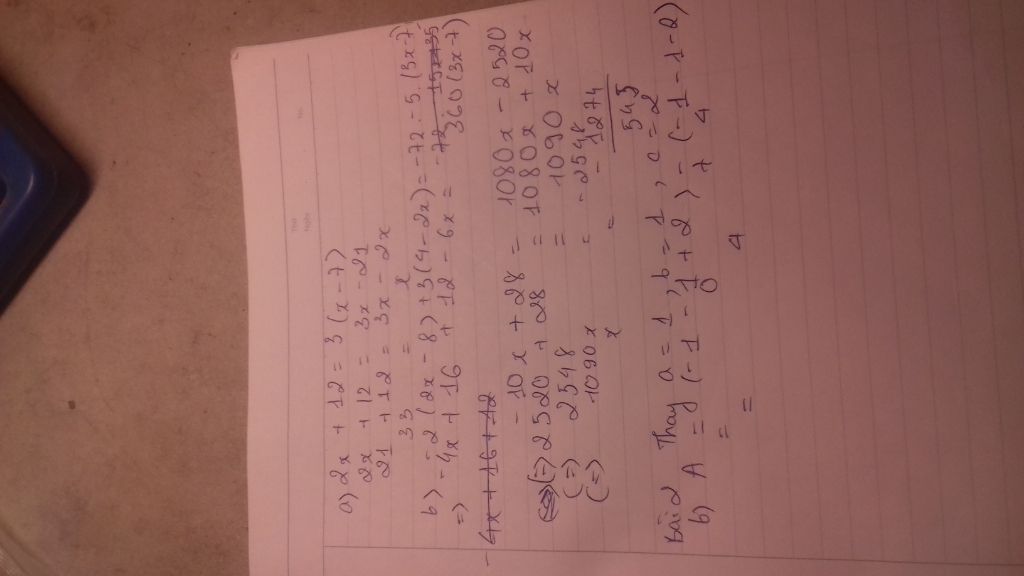 a) 2x + 12 = 3 (x - 7)
2x + 12 = 3x - 21
21 + 12 = 3x - 2x
33 = x
b) -2 (2x - 8) + 3 (4 - 2x) = -72 - 5. (3x - 7)
=> - 4x + 16 + 12 - 6x = -72 - 15x + 35
360 (3x - 7)
- 4x + 16 + 12
- 10 x + 28 = 1080x - 2520
(=) 2520 + 28 = 1080x + 10x
(=) 2548 = 1090 x
(=) 1090x = - 2548
x = - 1274
545
Bài 2 Thay a = 1, b = 1, c = 2
b) A = (-1 - 1 + 2) - (-1 - 1 - 2)
= 0 + 4
= 4